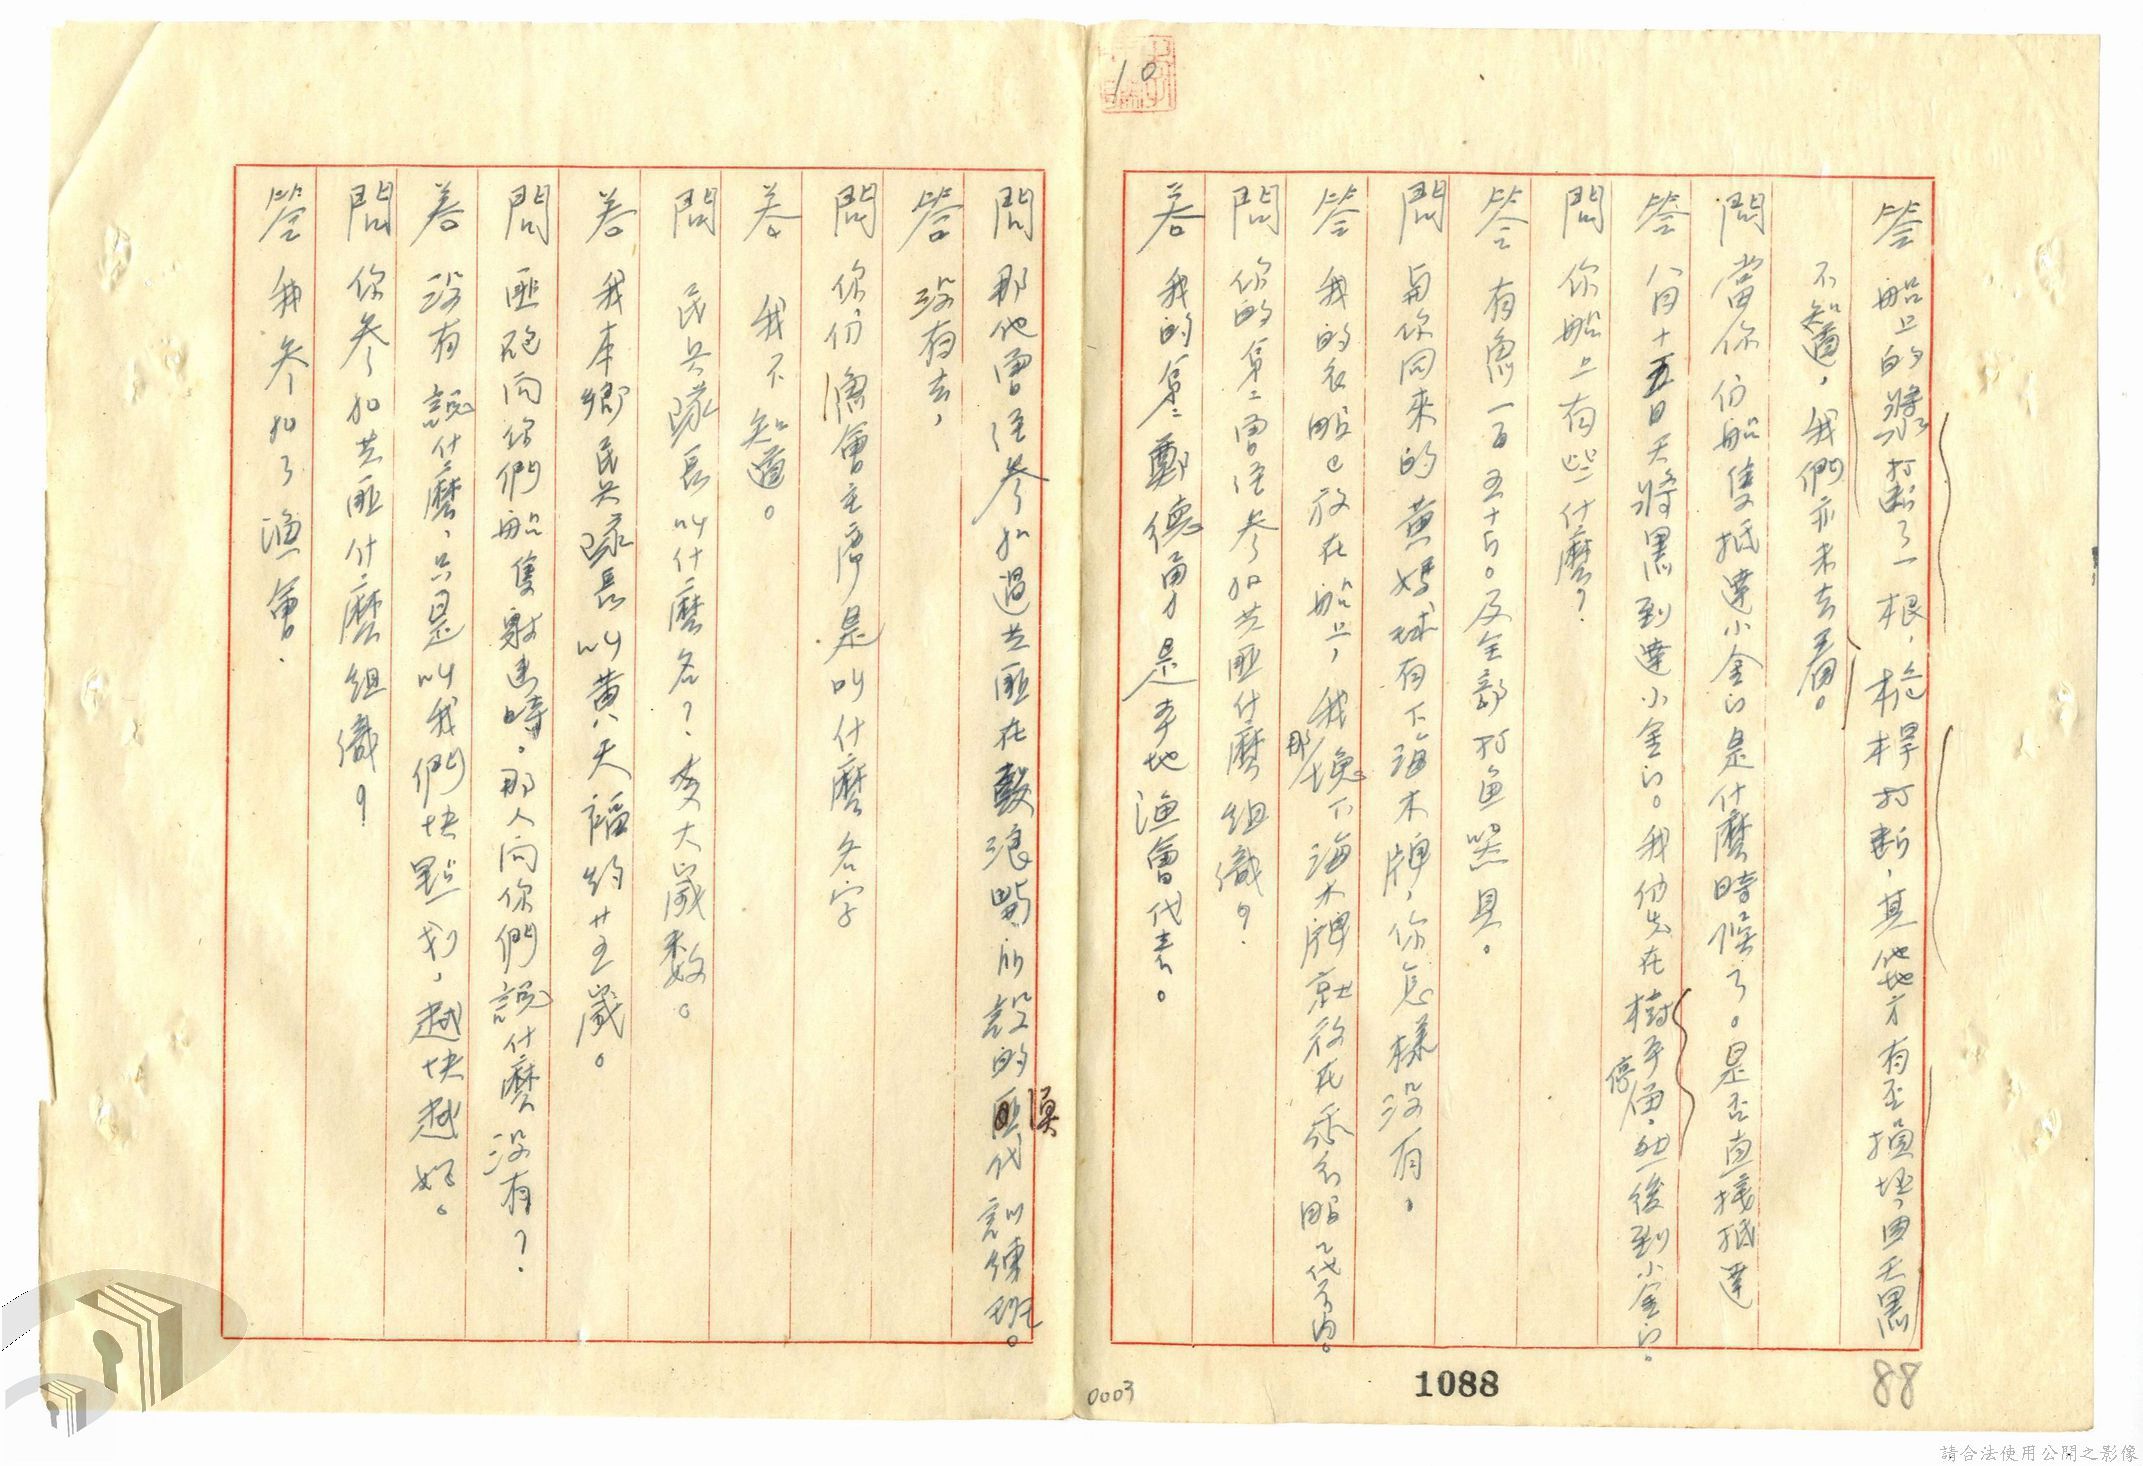 10
答 船上的槳打斷了一根，桅桿打斷，其他地方有否損壞，因天黑
不知道，我們亦未去看。
問 當你们船隻抵達小金门是什麼時候了。是否直接抵達
答 八月十五日天將黑到達小金门。我们先在樹平停
停，然後到小金门。
問 你船上有些什麼？
答 有魚一百五十斤。及全部打魚器具。
問 與你同來的黃媽球有下海木牌，你怎樣沒有，
答 我的衣服已放在船上，我換下海木牌就放在衣服代子內。
那
問 你的弟二曾经参加共匪什麼組織？
答 我的弟二鄭德勇是本地漁會代表。
問 那他曾经参加過共匪在鼓浪嶼所設的匪代訓練班。
漁
答 沒有去，
問 你们漁會主席是叫什麼名字
答 我不知道。
問 民兵隊長叫什麼名？多大歲数。
答 我本鄉民兵隊長叫黄天福約廿五歲。
問 匪砲向你們船隻射擊時。那人向你們說什麼沒有？
答 沒有說什麼，只是叫我們快點划，越快越好。
問 你参加共匪什麼組織？
答 我参加了漁會.
0003
1088
88
請合法使用公開之影像